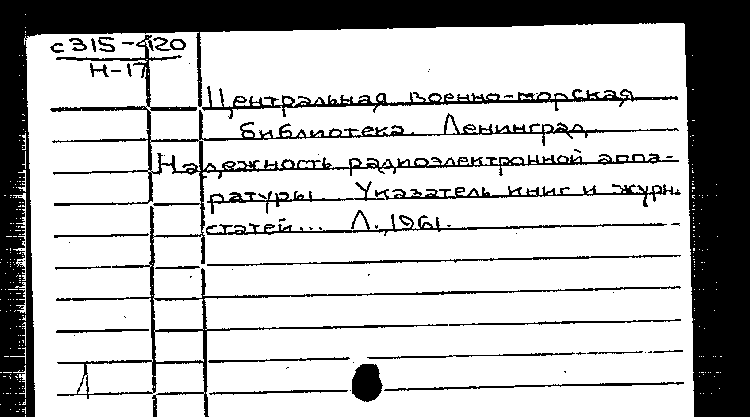 с315-420
Н-17
Центральная Военно-морская
библиотека. Ленинград.
Надежность радиоэлектронной аппа-
ратуры. Указатель книг и журн.
статей... Л., 1961.
1